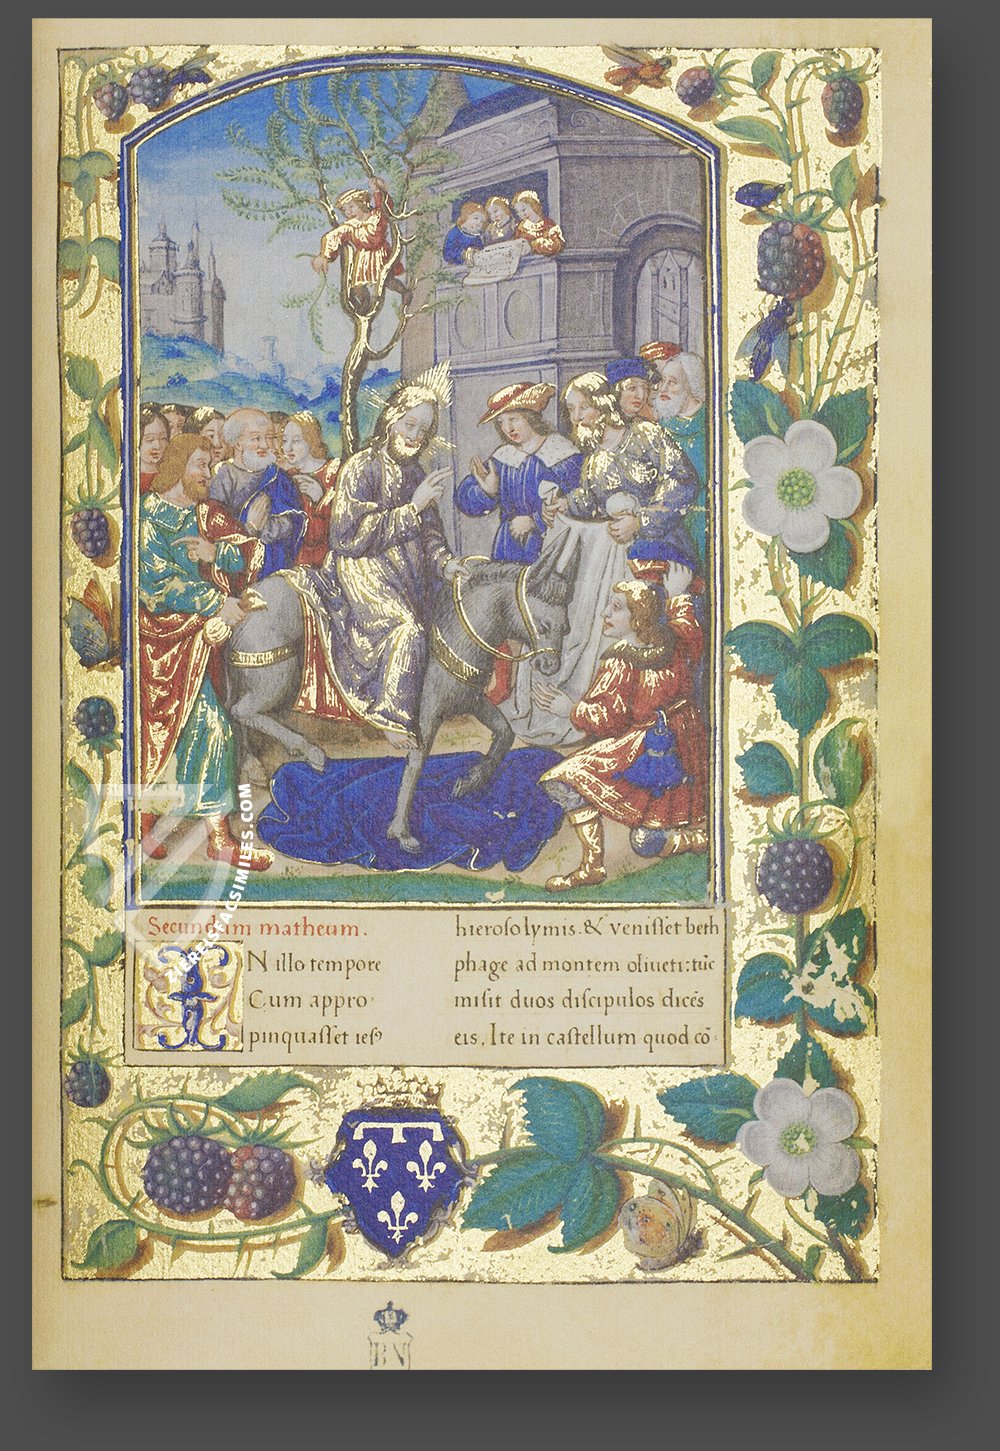 Secundum matheum.
IN illo tempore
Cum appro
pinquasset iesꝯ
hierosolymis. & venisset beth
phage ad montem oliueti: tūc
misit duos discipulos dicēs
eis. Ite in castellum quod cō
BN
ZIEREISFACSIMILES.COM